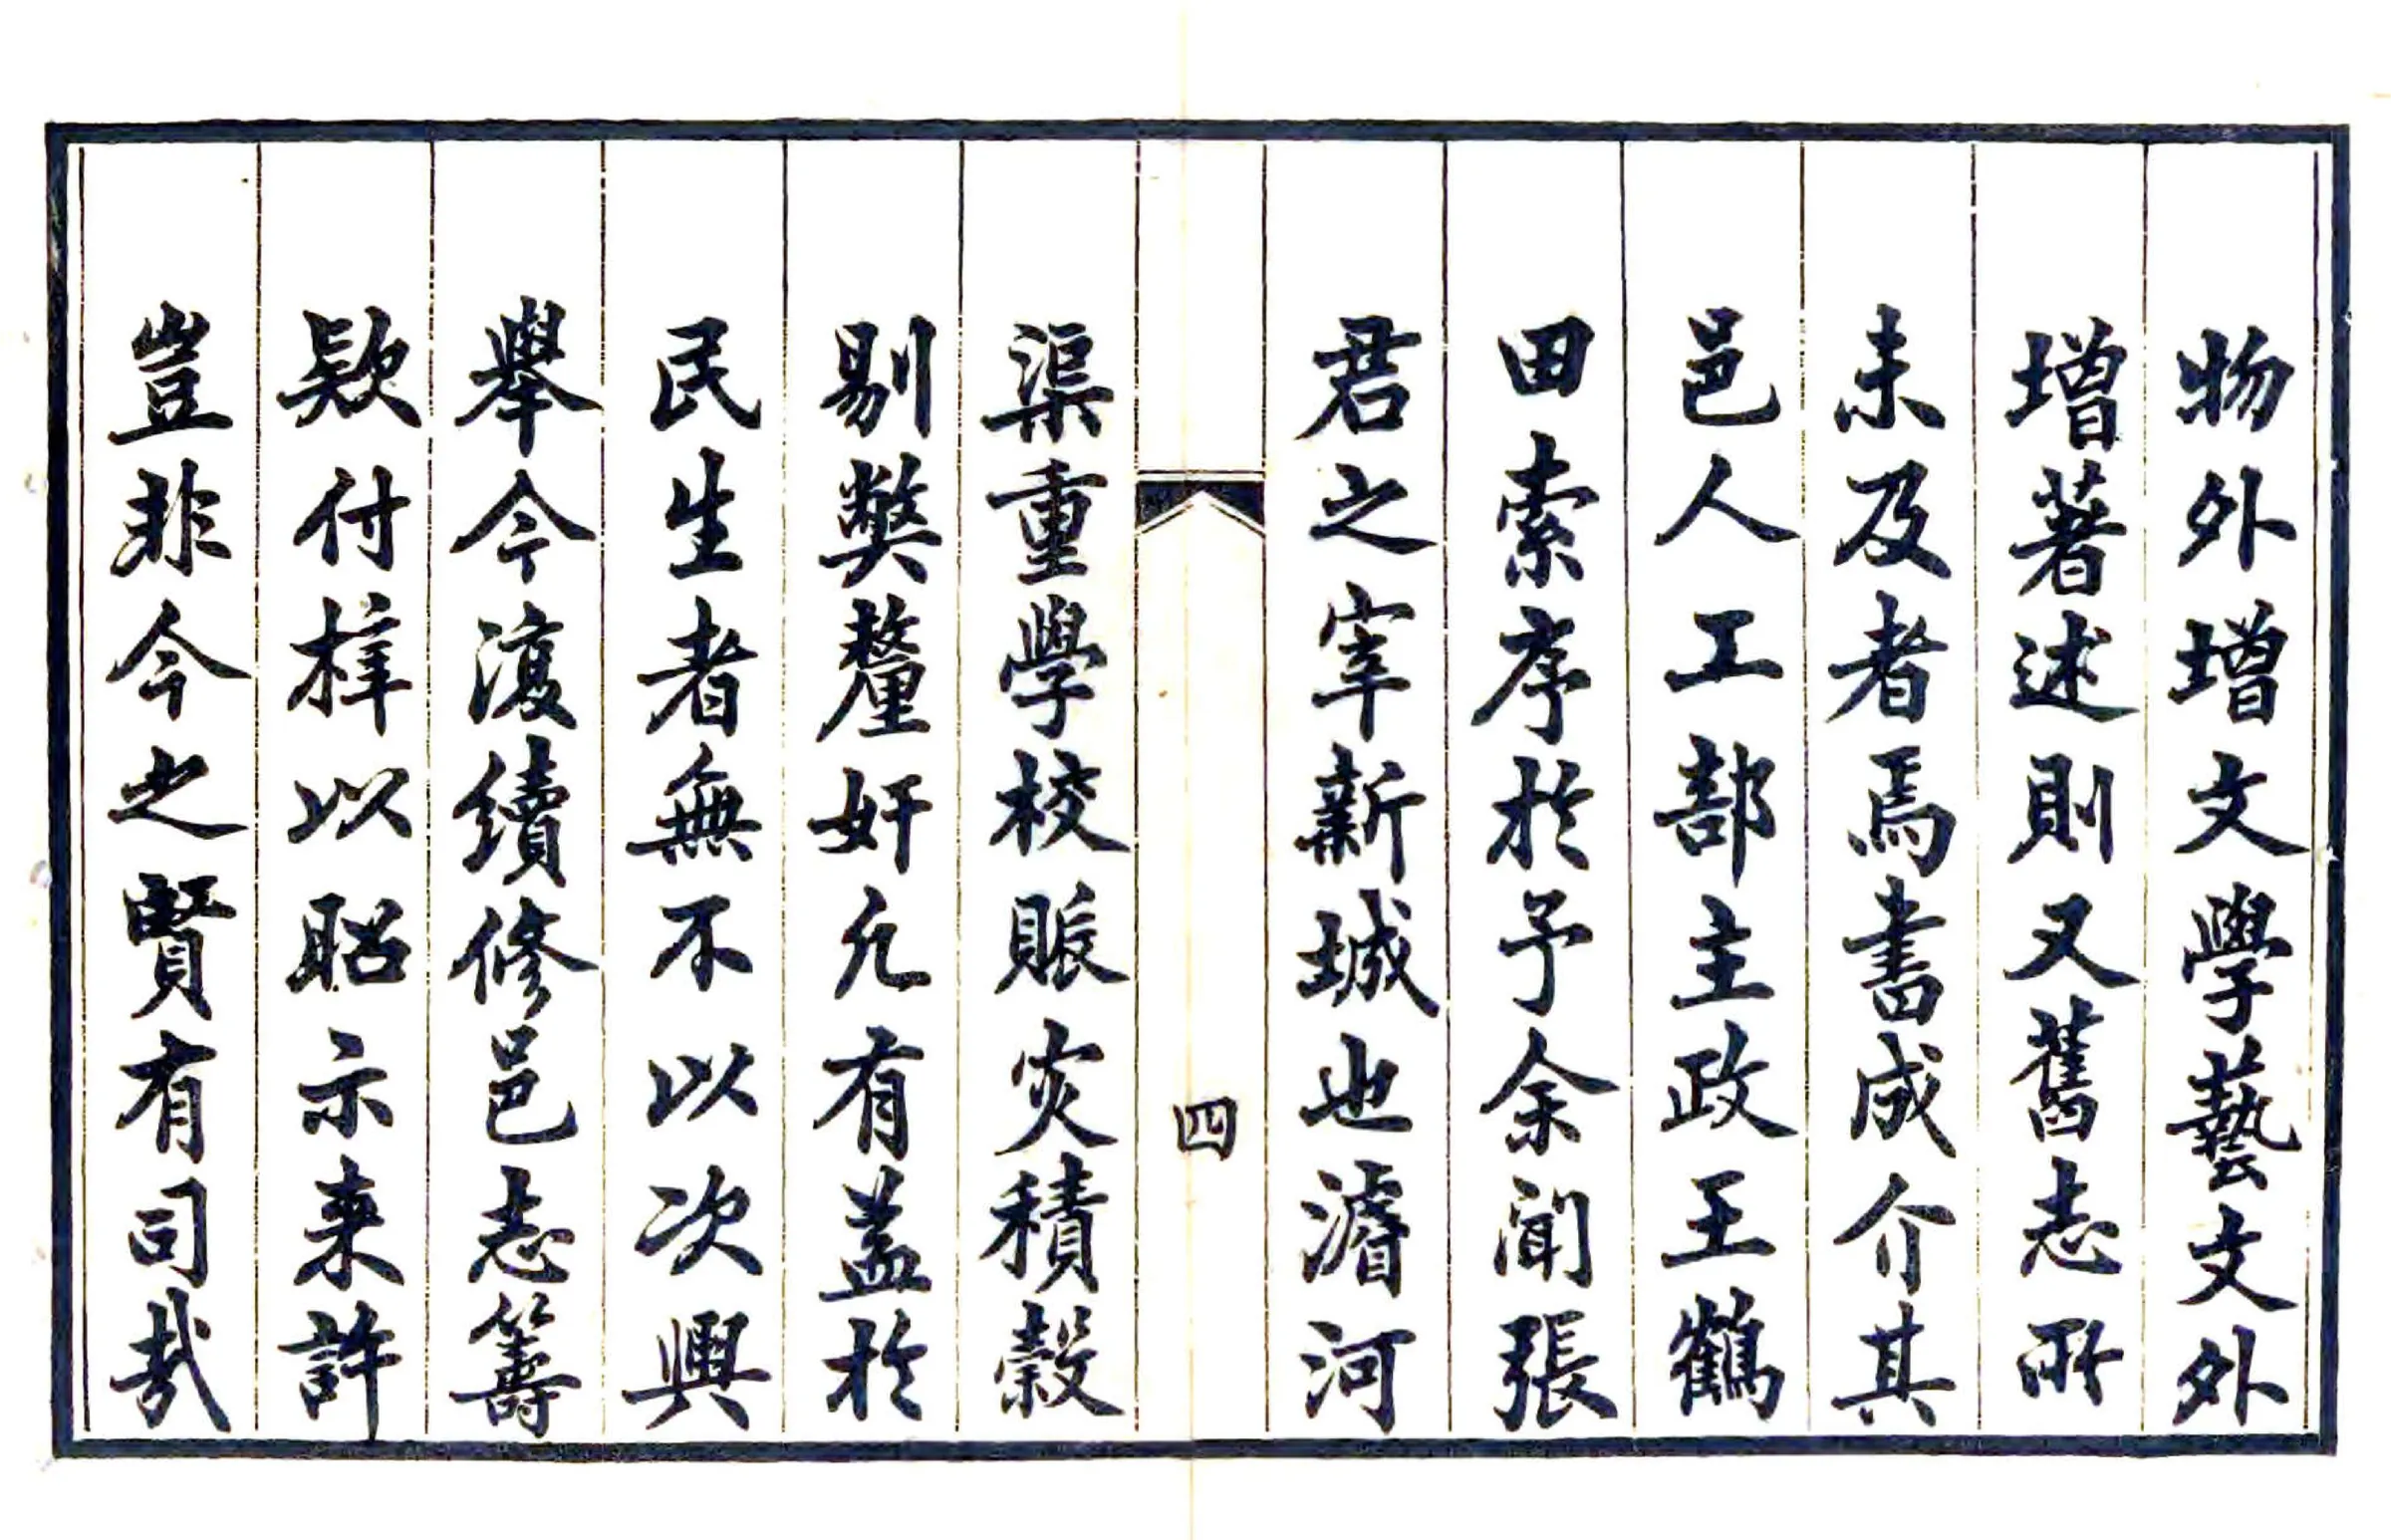 物外增文學藝文外
增著述則又舊志所
未及者焉書成介其
邑人工部主政王鶴
田索序於予余聞張
君之宰新城也濬河
四
渠重學校賑災積穀
剔獘釐奸凡有益於
民生者無不以次興
舉今復續修邑志籌
欵付梓以昭示来許
豈非今之賢有司哉